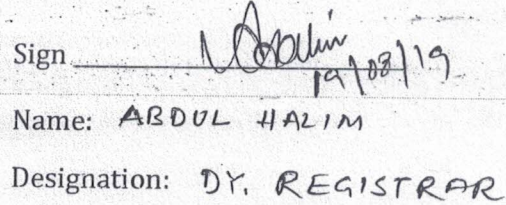 Sign
19/08/19
Name: ABDUL HALIM
Designation: DY. REGISTRAR